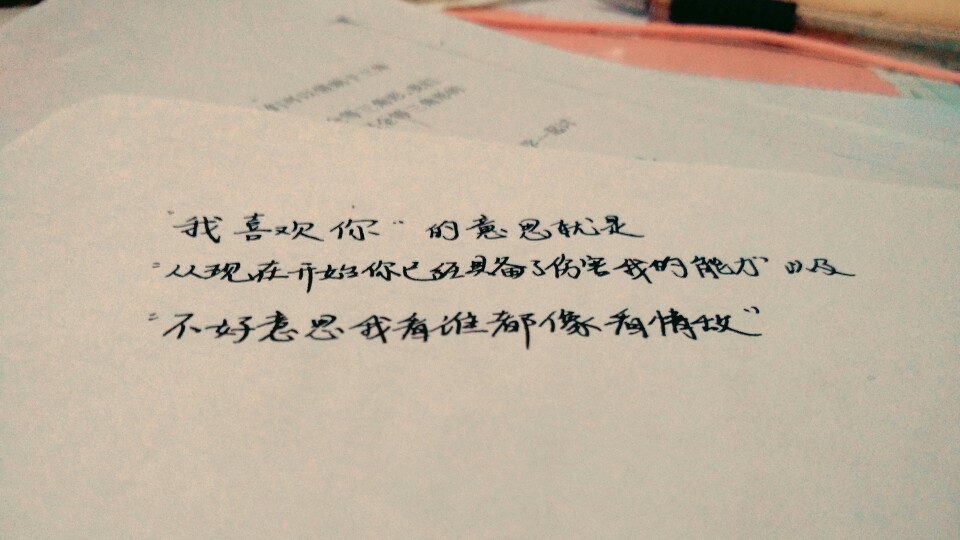 "我喜欢你"的意思就是
"从现在开始你已经具备了伤害我的能力"以及
"不好意思我看谁都像看情敌"